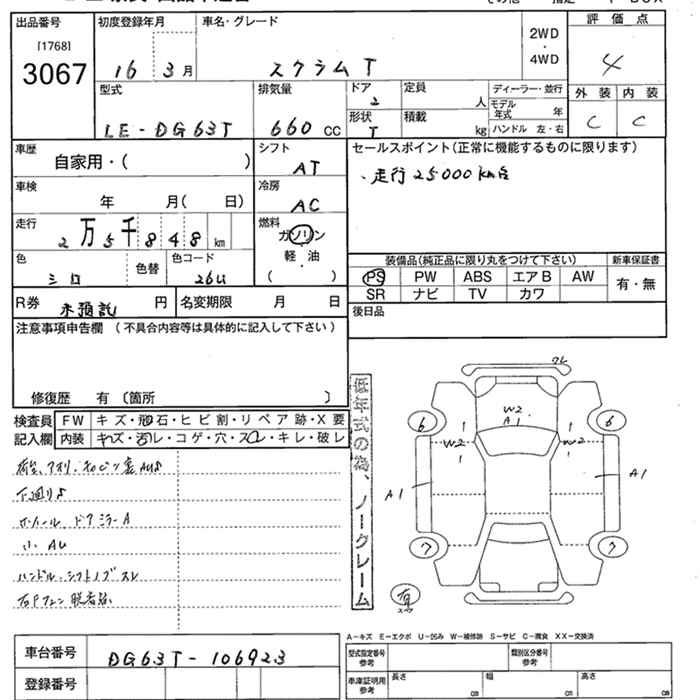 出品番号
[1768]
3067
初度登録年月
16 3月
車名・グレード
スクラムT
2WD
・
4WD
評価点
4
型式
LE-DG63T
排気量
660cc
ドア
2
形状
T
定員
人
積載
kg
ディーラー・並行
モデル年式 年
ハンドル 左・右
外装 内装
C C
車歴
自家用・( )
シフト
AT
セールスポイント(正常に機能するものに限ります)
、走行25000km台
車検
年 月( 日)
冷房
AC
走行
2万5千848km
燃料
ガソリン
軽・油
( )
色
シロ
色替
色コード
26U
装備品(純正品に限り丸をつけて下さい)
新車保証書
PS PW ABS エアB AW
SR ナビ TV カワ
有・無
R券 未預託 円
名変期限 月 日
後日品
注意事項申告欄 (不具合内容等は具体的に記入して下さい)
修復歴 有 〔箇所 〕
検査員記入欄
FW キズ・飛石・ヒビ割・リペア跡・X要
内装 キズ・汚レ・コゲ・穴・スレ・キレ・破レ
下廻りS
ホイール ドアミラーA
小AU
ハンドル・シフトノブスレ
低年式の為、ノークレーム
ワレ
W2
A1
6 6
W2 W2
1 1
A1 A1
7 7
有
スペア
A-キズ E-エクボ U-凹み W-補修跡 S-サビ C-腐食 XX-交換済
車台番号 DG63T-106923
登録番号
型式指定番号
参考
類別区分番号
参考
車庫証明用
参考
長さ cm
幅 cm
高さ cm